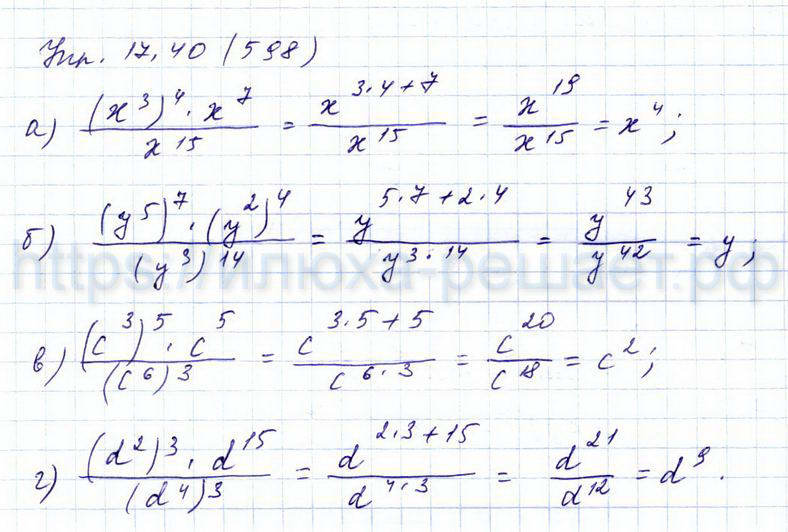 Упр. 17.40 (598)
а) (x^3)^4 · x^7 / x^15 = x^(3·4+7) / x^15 = x^19 / x^15 = x^4;
б) (y^5)^7 · (y^2)^4 / (y^3)^14 = y^(5·7+2·4) / y^(3·14) = y^43 / y^42 = y;
https://илюха-решает.рф
в) (c^3)^5 · c^5 / (c^6)^3 = c^(3·5+5) / c^(6·3) = c^20 / c^18 = c^2;
г) (d^2)^3 · d^15 / (d^4)^3 = d^(2·3+15) / d^(4·3) = d^21 / d^12 = d^9.